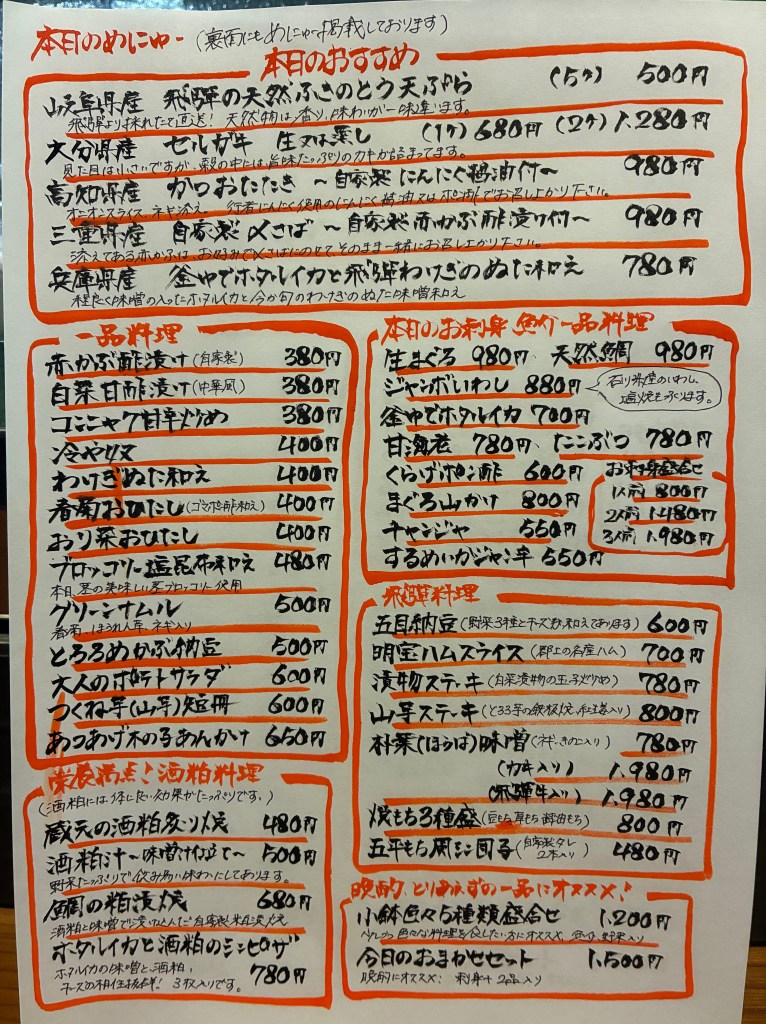 本日のめにゅー (裏面にもめにゅー掲載しております)
本日のおすすめ
岐阜県産 飛騨の天然ふきのとう天ぷら (5ヶ) 500円
飛騨より採れたて直送! 天然物は香り、味わいが一味違います。
大分県産 セルガキ 生又は蒸し (1ヶ) 680円 (2ヶ) 1.280円
見た目は小さいですが、殻の中には旨味たっぷりのカキが詰まってます。
高知県産 かつおたたき ～自家製にんにく醤油付～ 980円
オニオンスライス、ネギ添え。行者にんにく使用のにんにく醤油又はポン酢でお召し上がり下さい。
三重県産 自家製〆さば ～自家製赤かぶ酢漬け付～ 980円
添えてある赤かぶは、お好みで〆さばにのせて、そのまま一緒にお召し上がり下さい。
兵庫県産 釜ゆでホタルイカと飛騨わけぎのぬた和え 780円
程良く味噌の入ったホタルイカと今が旬のわけぎのぬた味噌和え
一品料理
赤かぶ酢漬け (自家製) 380円
白菜甘酢漬け (中華風) 380円
コンニャク甘辛炒め 380円
冷やっこ 400円
わけぎぬた和え 400円
春菊おひたし (ゴマポン酢和え) 400円
おり菜おひたし 400円
ブロッコリー塩昆布和え 480円
本日、茎の美味しい茎ブロッコリー使用
グリーンナムル 500円
春菊、ほうれん草、ネギ入り
とろろめかぶ納豆 500円
大人のポテトサラダ 600円
つくね芋(山芋)短冊 600円
あつあげ木の子あんかけ 650円
栄養満点!酒粕料理
(酒粕には体に良い効果がたっぷりです。)
蔵元の酒粕炙り焼 480円
酒粕汁 ～味噌汁仕立て～ 500円
野菜たっぷりで飲み易い味わいにしてあります。
鯛の粕漬焼 680円
酒粕と味噌で漬け込んだ自家製粕漬焼
ホタルイカと酒粕のミニピザ
ホタルイカの味噌と酒粕、
チーズの相性抜群! 3枚入りです。 780円
本日のお刺身 魚介一品料理
生まぐろ 980円 天然鯛 980円
ジャンボいわし 880円
石川県産のいわし、
塩焼も承ります。
釜ゆでホタルイカ 700円
甘海老 780円、たこぶつ 780円
くらげポン酢 600円
まぐろ山かけ 800円
チャンジャ 550円
するめいかジャン辛 550円
お刺身盛合せ
1人前 800円
2人前 1.480円
3人前 1.980円
飛騨料理
五目納豆 (野菜3種とチーズも和えております) 600円
明宝ハムスライス (郡上の名産ハム) 700円
漬物ステーキ (白菜漬物の玉子炒め) 780円
山芋ステーキ (とろろ芋の鉄板焼、紅生姜入り) 800円
朴葉(ほうば)味噌 (ネギ、きのこ入り) 780円
(カキ入り) 1.980円
(飛騨牛入り) 1.980円
焼もち3種盛 (豆もち、草もち、 800円
五平もち風ミニ団子 (自家製タレ 2本入り) 480円
晩酌 とりあえずの一品にオススメ!
小鉢色々5種類盛合せ 1.200円
今日のおまかせセット 1.500円
晩酌にオススメ! 刺身+2品入り